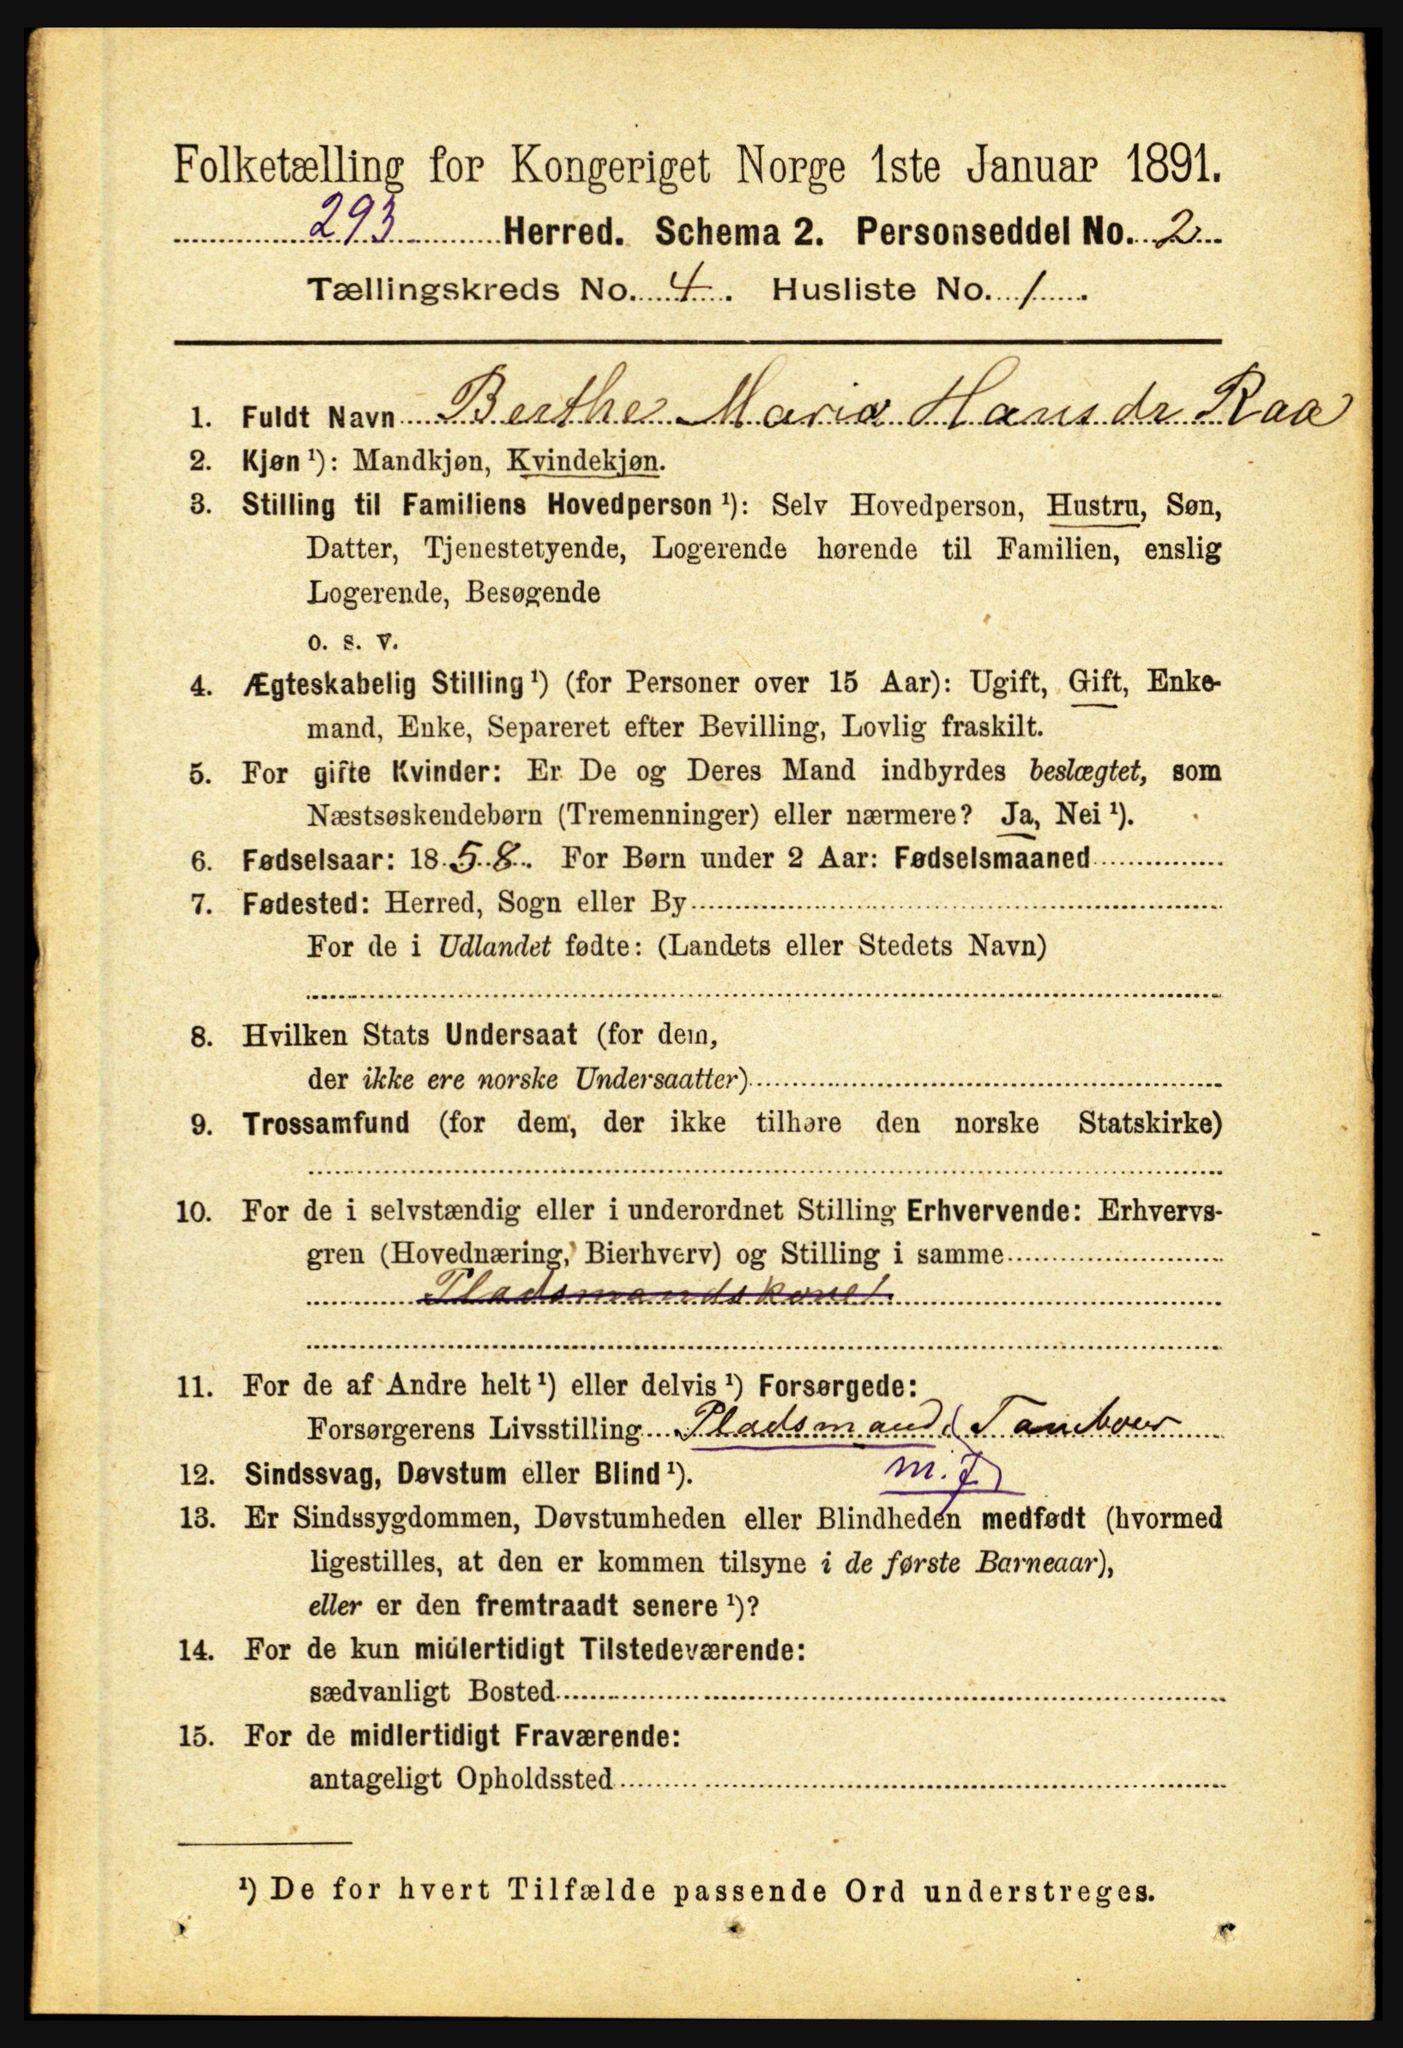 Folketælling for Kongeriget Norge 1ste Januar 1891.
293 Herred. Schema 2. Personseddel No. 2
Tællingskreds No. 4. Husliste No. 1.
1. Fuldt Navn Berthe Maria Hansdr Raa
2. Kjøn ¹): Mandkjøn, Kvindekjøn.
3. Stilling til Familiens Hovedperson ¹): Selv Hovedperson, Hustru, Søn,
Datter, Tjenestetyende, Logerende hørende til Familien, enslig
Logerende, Besøgende
o. s. v.
4. Ægteskabelig Stilling ¹) (for Personer over 15 Aar): Ugift, Gift, Enke-
mand, Enke, Separeret efter Bevilling, Lovlig fraskilt.
5. For gifte Kvinder: Er De og Deres Mand indbyrdes beslægtet, som
Næstsøskendebørn (Tremenninger) eller nærmere? Ja, Nei ¹).
6. Fødselsaar: 1858. For Børn under 2 Aar: Fødselsmaaned
7. Fødested: Herred, Sogn eller By
For de i Udlandet fødte: (Landets eller Stedets Navn)
8. Hvilken Stats Undersaat (for dem,
der ikke ere norske Undersaatter)
9. Trossamfund (for dem, der ikke tilhøre den norske Statskirke)
10. For de i selvstændig eller i underordnet Stilling Erhvervende: Erhvervs-
gren (Hovednæring, Bierhverv) og Stilling i samme
Pladsmandskone!
11. For de af Andre helt ¹) eller delvis ¹) Forsørgede:
Forsørgerens Livsstilling Pladsmand, Tambour
m. J.
12. Sindssvag, Døvstum eller Blind ¹).
13. Er Sindssygdommen, Døvstumheden eller Blindheden medfødt (hvormed
ligestilles, at den er kommen tilsyne i de første Barneaar),
eller er den fremtraadt senere ¹)?
14. For de kun midlertidigt Tilstedeværende:
sædvanligt Bosted
15. For de midlertidigt Fraværende:
antageligt Opholdssted
¹) De for hvert Tilfælde passende Ord understreges.